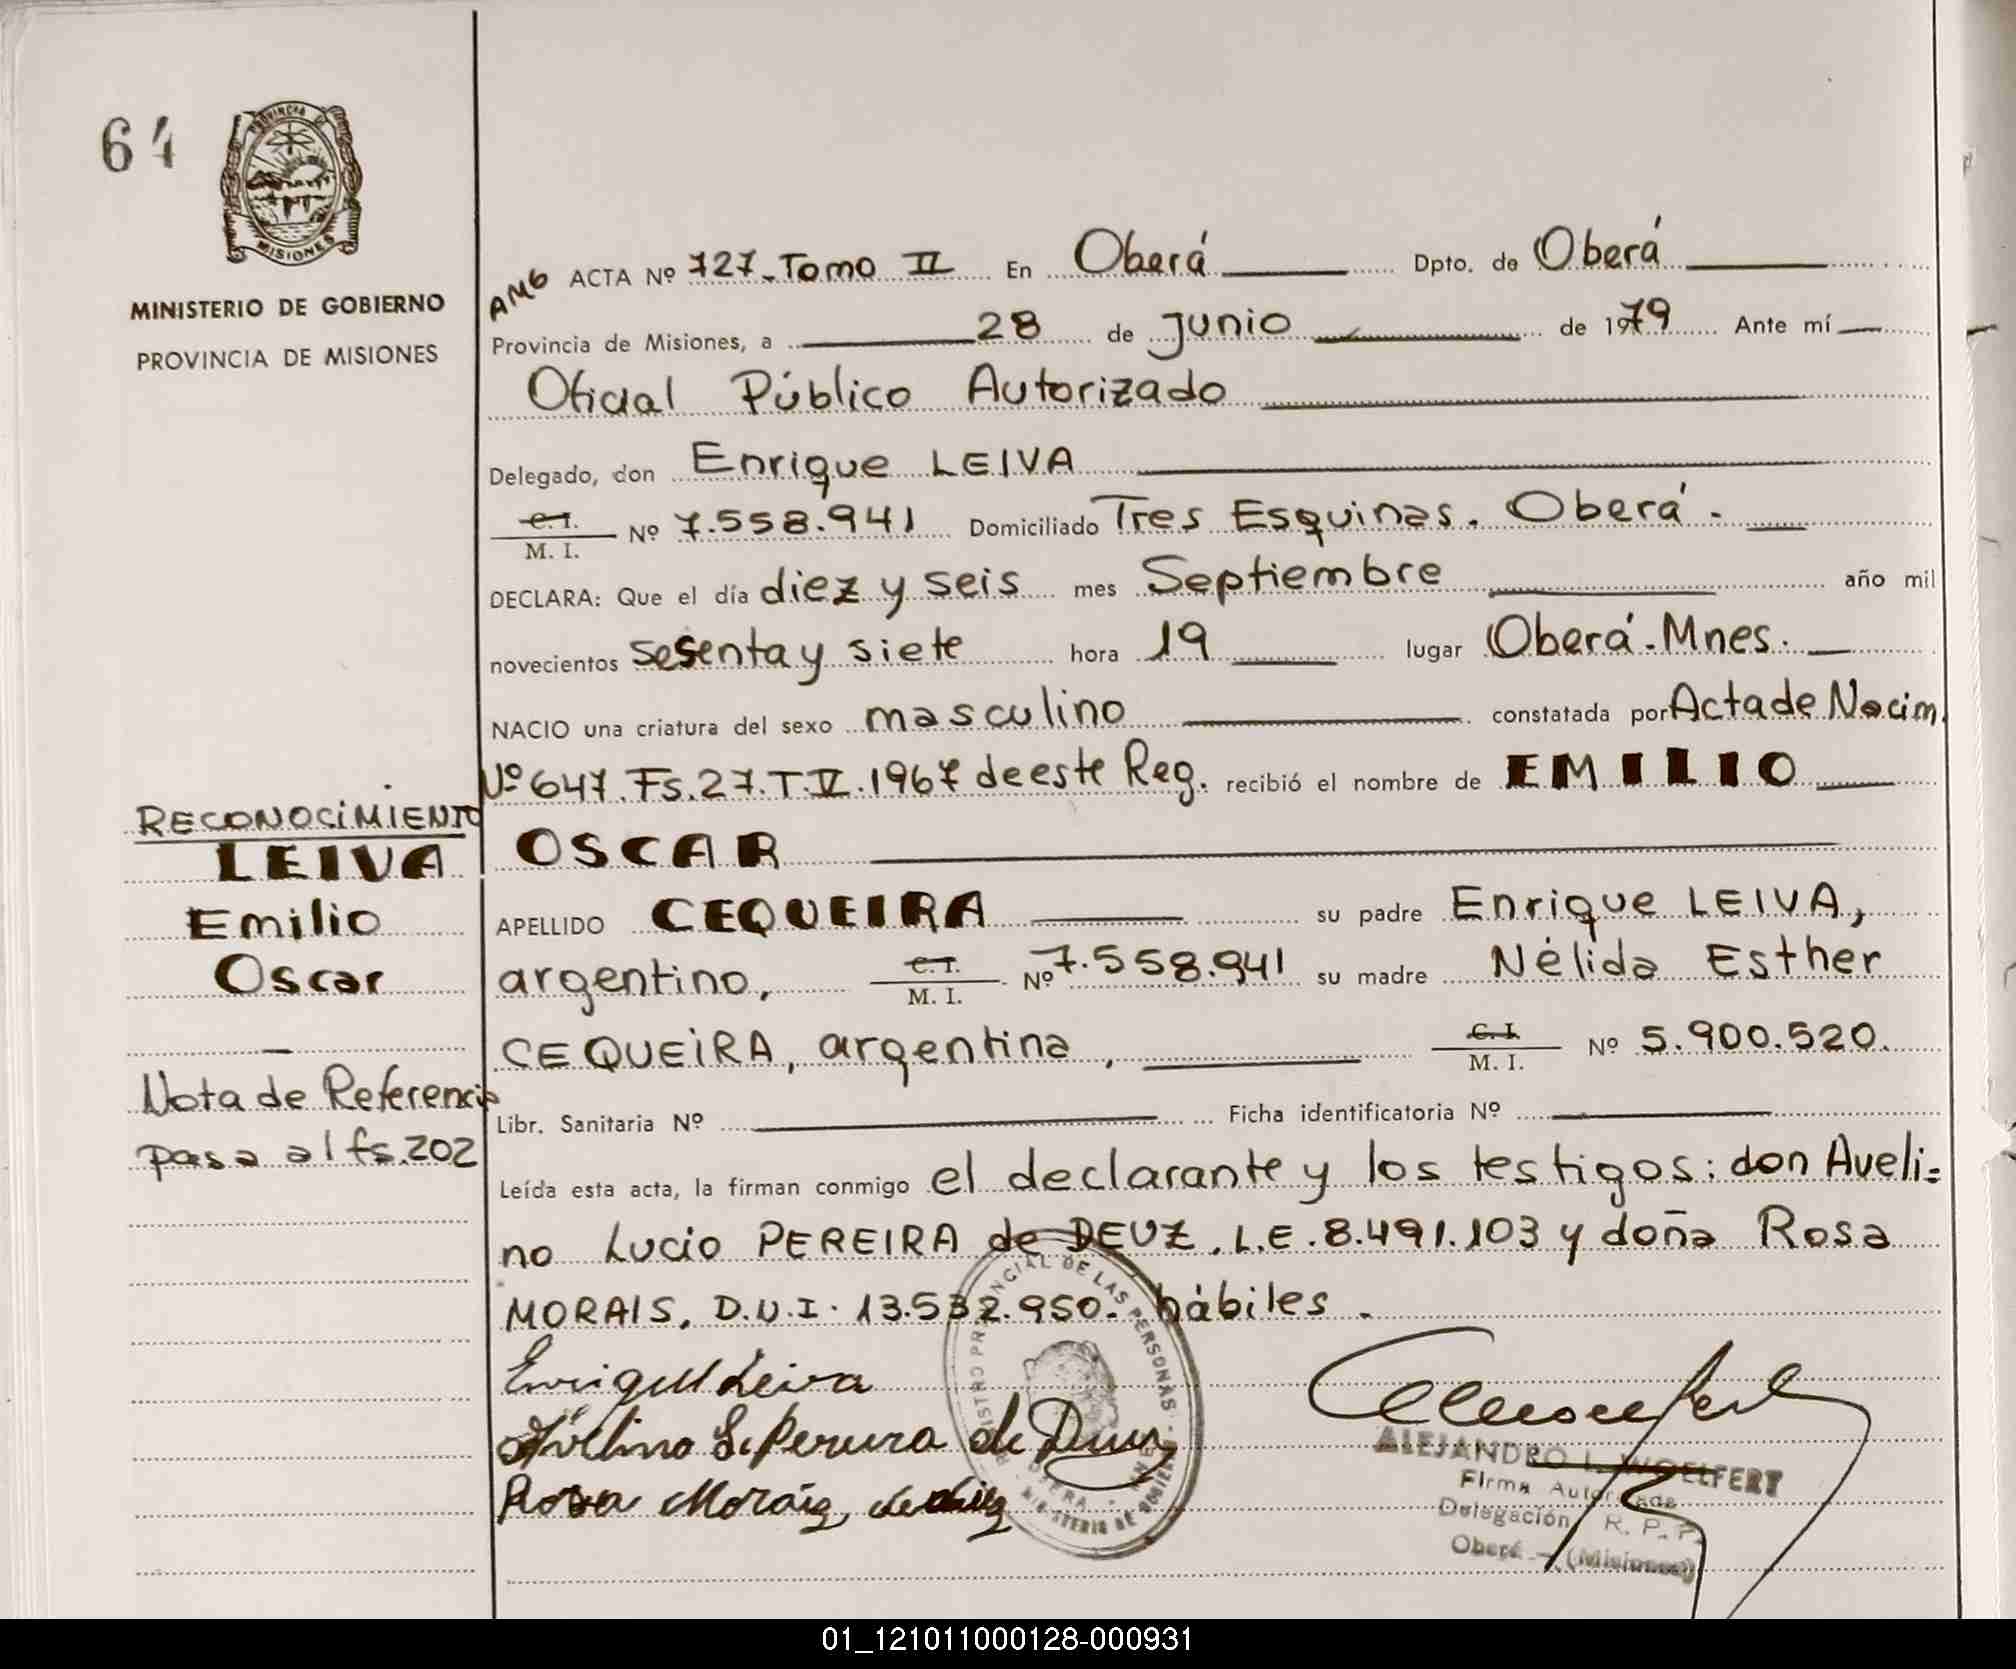 64
PROVINCIA DE
MISIONES
MINISTERIO DE GOBIERNO
PROVINCIA DE MISIONES
AMG ACTA Nº 727-Tomo II En Oberá Dpto. de Oberá
Provincia de Misiones, a 28 de junio de 1979 Ante mí
Oficial Público Autorizado
Delegado, don Enrique LEIVA
C.I. / M. I. Nº 7.558.941 Domiciliado Tres Esquinas. Oberá.
DECLARA: Que el día diez y seis mes Septiembre año mil
novecientos sesenta y siete hora 19 lugar Oberá-Mnes.
NACIO una criatura del sexo masculino constatada por Acta de Nacim.
Nº 647.Fs.27.T.IV.1967 de este Reg. recibió el nombre de EMILIO
OSCAR
APELLIDO CEQUEIRA su padre Enrique LEIVA,
argentino, C.I. / M. I. Nº 7.558.941 su madre Nélida Esther
CEQUEIRA, argentina, C.I. / M. I. Nº 5.900.520.
Libr. Sanitaria Nº Ficha identificatoria Nº
Leída esta acta, la firman conmigo el declarante y los testigos: don Aveli=
no Lucio PEREIRA de DEUZ, L.E. 8.491.103 y doña Rosa
MORAIS, D.N.I. 13.532.950. hábiles.
RECONOCIMIENTO
LEIVA
Emilio
Oscar
Nota de Referencia
pasa al fs.202
Enrique Leiva
Avelino L. Pereira de Deuz
Rosa Moraiz
REGISTRO PROVINCIAL DE LAS PERSONAS
MINISTERIO DE GOBIERNO
OBERA
ALEJANDRO L. WOELFERT
Firma Autorizada
Delegación R. P. P.
Oberá - (Misiones)
01_121011000128-000931